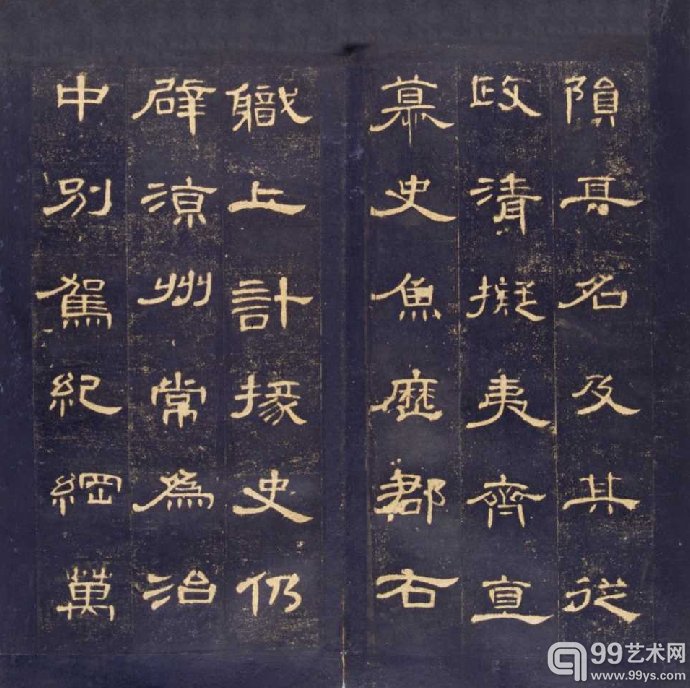 隕其名及其從
政清擬夷齊直
慕史魚歷郡右
職上計掾史仍
辟涼州常為治
中別駕紀綱萬
99艺术网
www.99ys.com